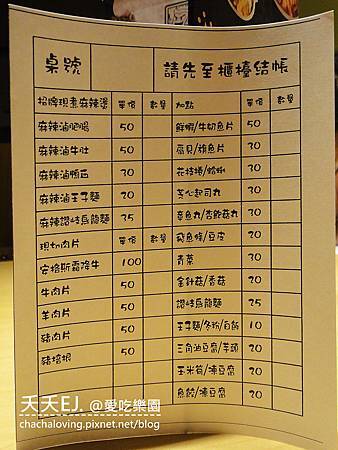 桌號 請先至櫃檯結帳
招牌現煮麻辣燙 單價 數量 加點
麻辣滷肥腸 50 鮮蝦/牛奶魚片 50
麻辣滷牛肚 50 扇貝/鮑魚片 30
麻辣滷鴨血 30 花枝捲/蛤蜊 30
麻辣滷王子麵 20 爆心起司丸 30
麻辣讚岐烏龍麵 35 章魚丸/杏鮑菇丸 30
現切肉片 單價 數量 飛魚條/豆皮 20
安格斯霜降牛 100 青菜 30
牛肉片 50 金針菇/香菇 20
羊肉片 50 讚岐烏龍麵 25
豬肉片 50 王子麵/冬粉/白飯 10
豬梅根 50 三角油豆腐/芋頭 20
玉米筍/凍豆腐 20
魚餃/凍豆腐 20
夭夭EJ. @愛吃樂園
chachaloving.pixnet.net/blog